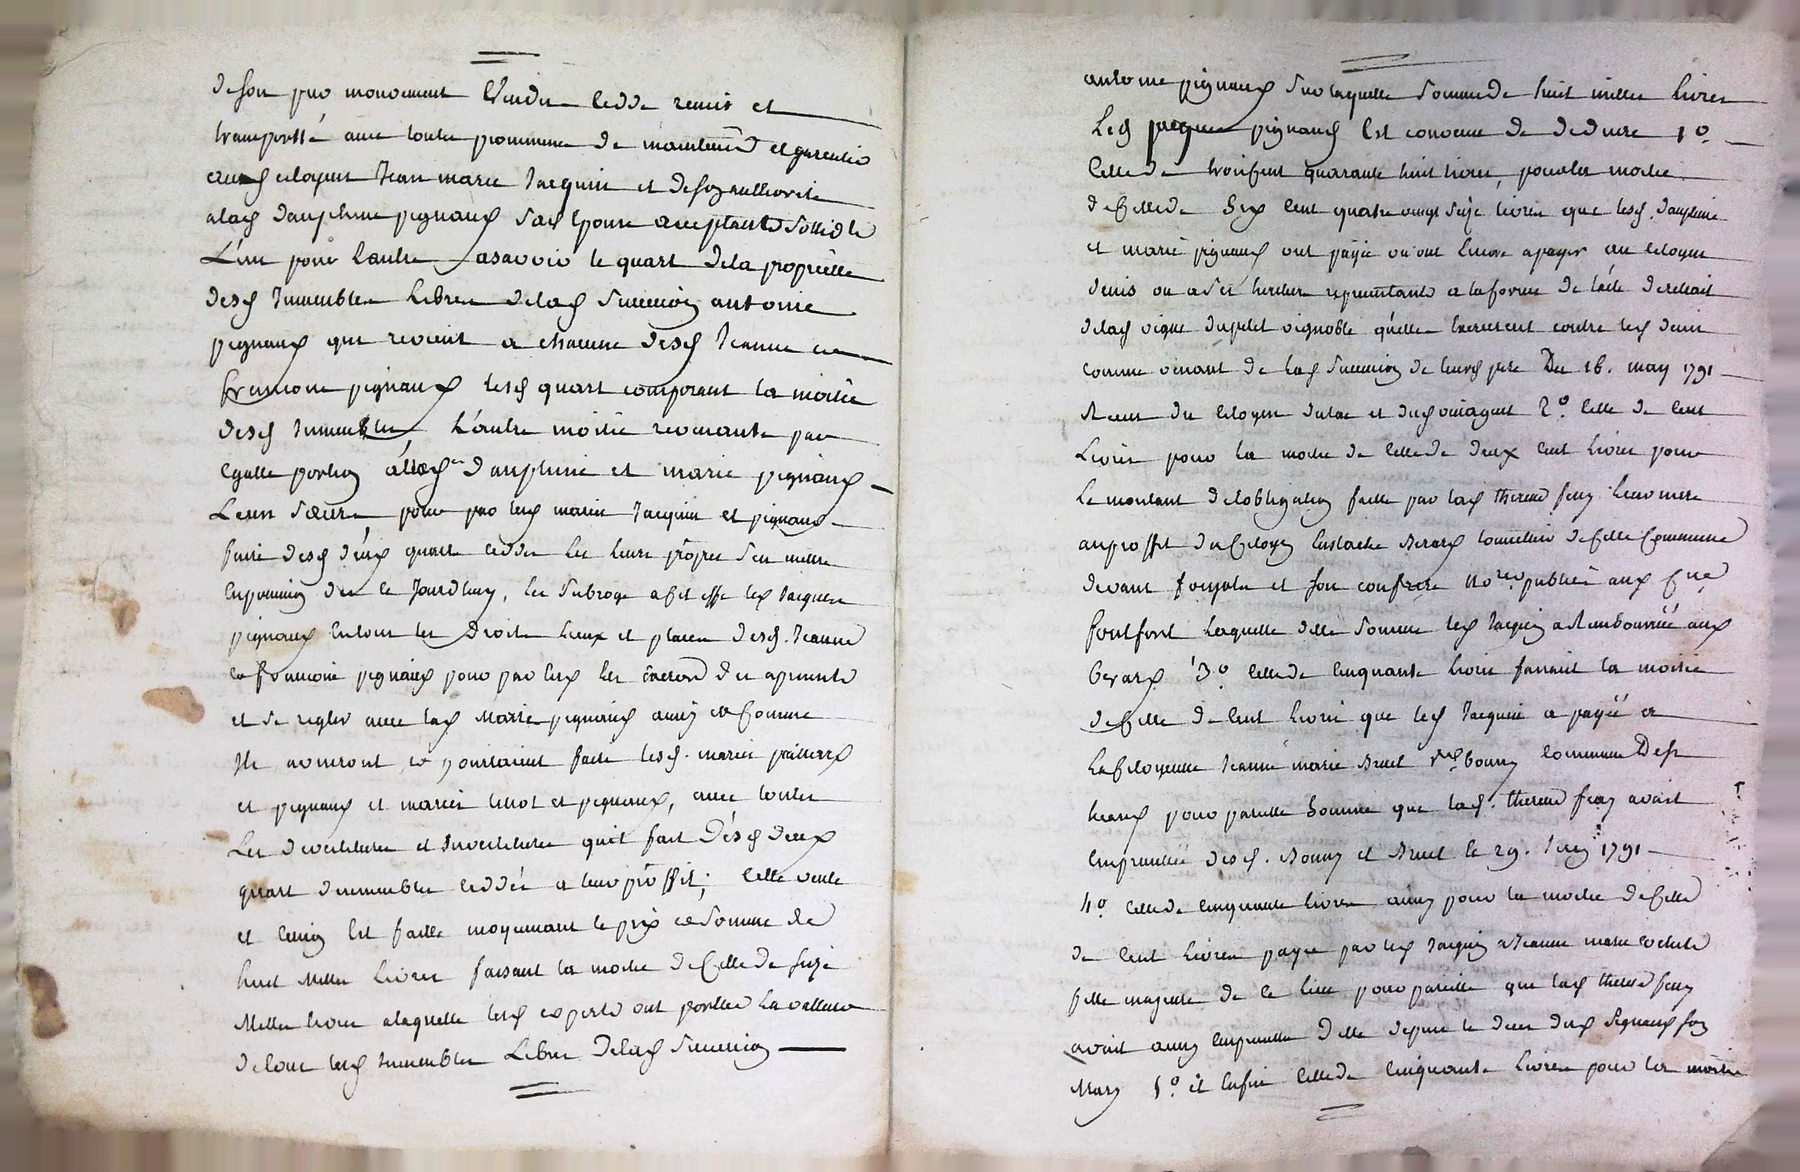 de son pur mouvement Vendu cedde remis et
transporté avec toutte promesse de maintenüe et garentie
citoyen Jean marie Jacquin et de soy authorité
alad dauphine pignaux sad Epouse acceptants sollide
L'un pour l'autre asavoir le quart dela propriette
desd Immeubles Libres delad succession antoine
pignaux qui revient a chacune desd Jeanne et
francoise pignaux lesd quart composant la moitie
desd Immeubles L'autre moitie revenante par
egalle portion dauphine et marie pignaux
Leurs soeurs pour par lesd mariés Jacquin et pignaux
faire desd deux quart cedde les leurs propres s'en mettre
En possession des ce Jourdhuy, les subroge acet effet led Jacques
pignaux En tous les Droits Lieux et places desd. Jeanne
et francoise pignaux pour par Eux les Exercer des apresent
et se regler avec lad Marie pignaux ainsy et comme
Ils aviseront et pourraient faire lesd. mariés
et pignaux et mariés et pignaux, avec touttes
Les devestitures et Investitures quil fait Desd deux
quart dimmeubles ceddés a leur proffit; Cette vente
et cession Est faitte moyennant le prix et somme de
huit Mille Livres faisant la moitie de Celle de seize
Mille livres alaquelle lesd experts ont porttée La valleur
de tous lesd Immeubles Libres delad succession
antoine pignaux sur laquelle somme de huit mille livres
Led Jacques pignaux Est convenu de deduire 1°.
Celle de trois cent quarante huit livres, pour la moitie
de Celle de Six Cent quatre vingt seize livres que lesd. dauphine
et marie pignaux ont payée ou ont Encore apayer au Citoyen
denis ou a ses heritiers representants a la forme de l'acte de retrait
delad vigne du petit vignoble qu'elles Exercerent contre led denis
comme venant de lad succession de leurd pere Du 16. may 1791
Recu du Citoyen et dud 2°. Celle de Cent
Livres pour la moitie de Celle de deux Cent livres pour
Le montant de l'obligation faitte par lad therese Leur mere
au proffit du Citoyen Eustache tonnellier de Cette Commune
devant et son confrere No.res publics aux
laquelle ditte somme led Jacquin a Rembourcée aux
3° Celle de Cinquante livres faisant la moitie
de Celle de Cent livres que led Jacquin a payée a
La Citoyenne Jeanne marie commune De
pour pareille Somme que lad. therese avait
Empruntée desd. et le 29. 1791
4° Celle de Cinquante livres ainsy pour la moitie de Celle
de Cent Livres payée par led Jacquin a Jeanne marie
fille majeure de ce lieu pour pareille que lad therese
avait ainsy Emprunttée d'elle depuis le deces dud Pignaux son
Mary 5° et Enfin Celle de Cinquante Livres pour la moitie